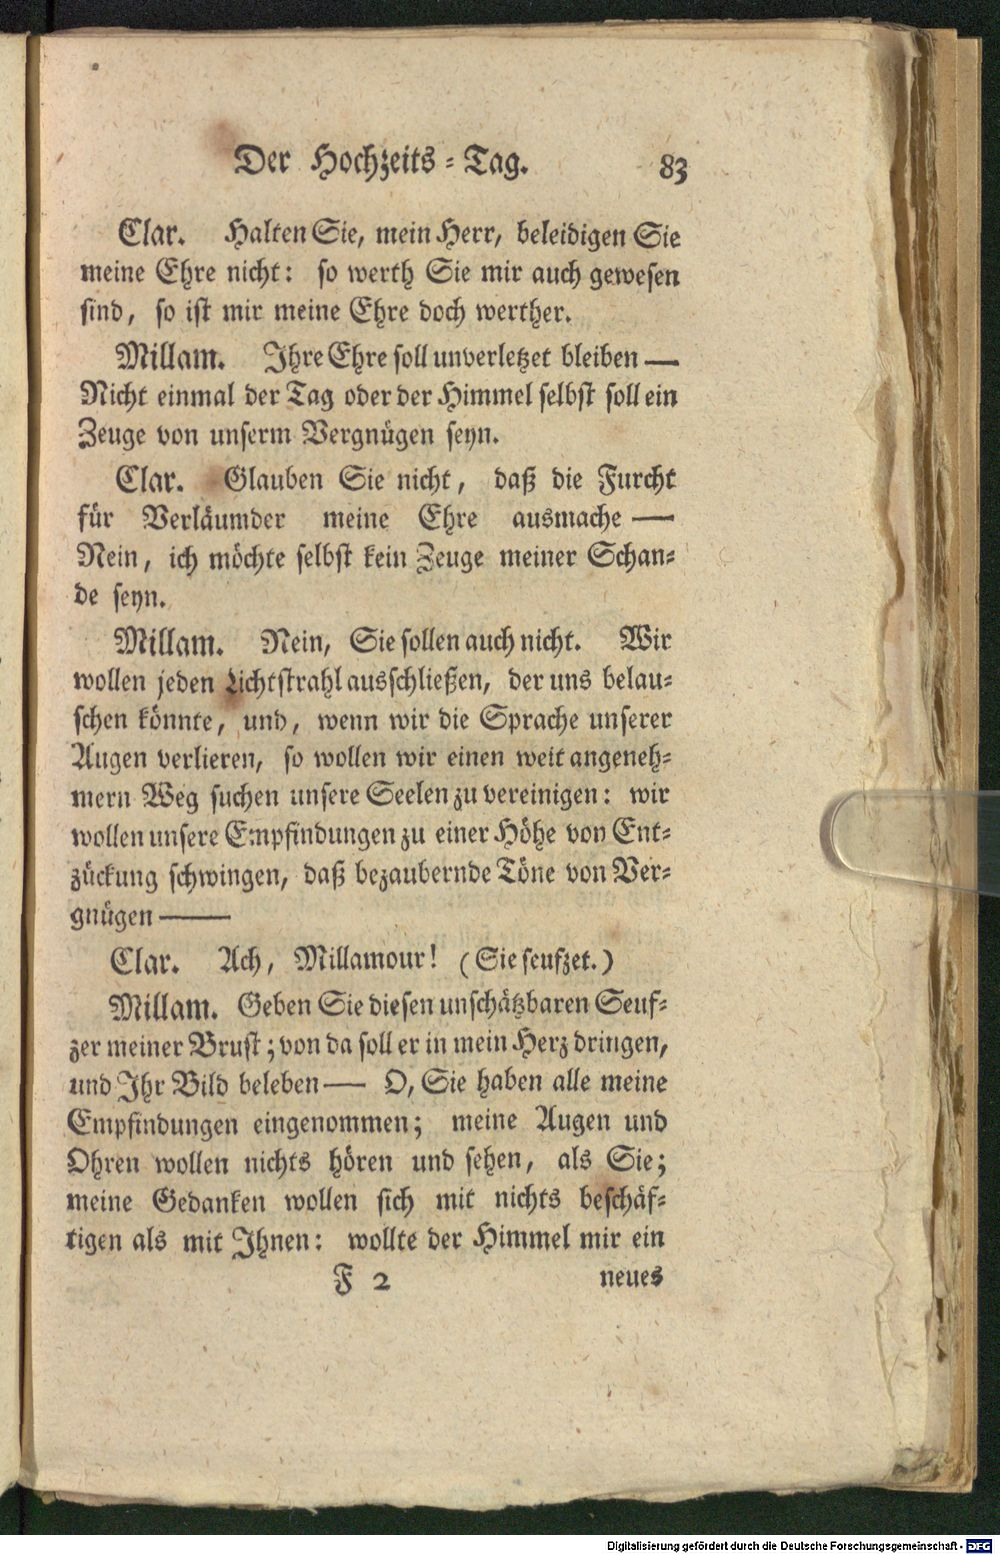 Der Hochzeits-Tag. 83
Clar. Halten Sie, mein Herr, beleidigen Sie
meine Ehre nicht: so werth Sie mir auch gewesen
sind, so ist mir meine Ehre doch werther.
Millam. Ihre Ehre soll unverletzet bleiben —
Nicht einmal der Tag oder der Himmel selbst soll ein
Zeuge von unserm Vergnügen seyn.
Clar. Glauben Sie nicht, daß die Furcht
für Verläumder meine Ehre ausmache —
Nein, ich möchte selbst kein Zeuge meiner Schan-
de seyn.
Millam. Nein, Sie sollen auch nicht. Wir
wollen jeden Lichtstrahl ausschließen, der uns belau-
schen könnte, und, wenn wir die Sprache unserer
Augen verlieren, so wollen wir einen weit angeneh-
mern Weg suchen unsere Seelen zu vereinigen: wir
wollen unsere Empfindungen zu einer Höhe von Ent-
zückung schwingen, daß bezaubernde Töne von Ver-
gnügen ——
Clar. Ach, Millamour! (Sie seufzet.)
Millam. Geben Sie diesen unschätzbaren Seuf-
zer meiner Brust; von da soll er in mein Herz dringen,
und Ihr Bild beleben — O, Sie haben alle meine
Empfindungen eingenommen; meine Augen und
Ohren wollen nichts hören und sehen, als Sie;
meine Gedanken wollen sich mit nichts beschäf-
tigen als mit Ihnen: wollte der Himmel mir ein
F 2 neues
Digitalisierung gefördert durch die Deutsche Forschungsgemeinschaft - DFG